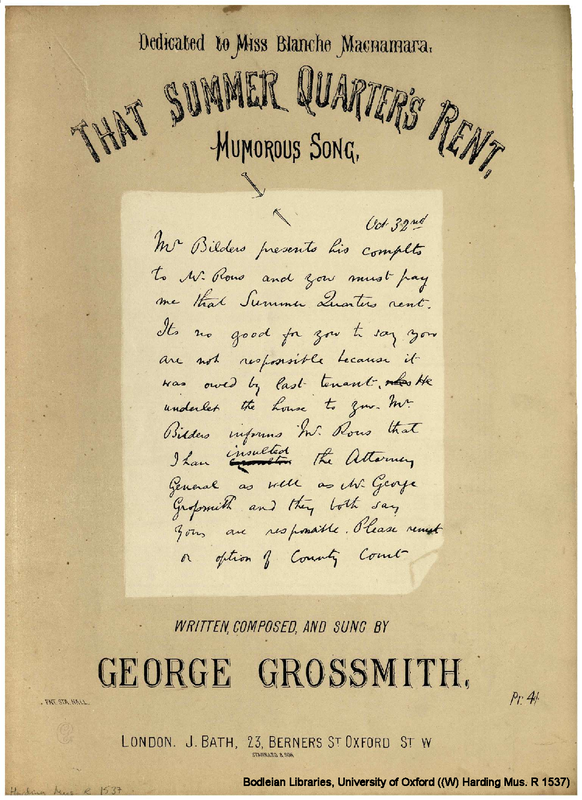 Dedicated to Miss Blanche Macnamara.
THAT SUMMER QUARTER'S RENT,
HUMOROUS SONG,
Oct 32nd
Mr Bilders presents his complts
to Mr. Rous and you must pay
me that Summer Quarters rent.
Its no good for you to say you
are not responsible because it
was owed by last tenant. He
underlet the house to you. Mr.
Bilders informs Mr. Rous that
I have insulted the Attorney
General as well as Mr George
Grossmith and they both say
yous are responsible. Please remit
or option of County Court
WRITTEN, COMPOSED, AND SUNG BY
GEORGE GROSSMITH.
ENT. STA. HALL.
Pr. 4/
LONDON. J. BATH, 23, BERNERS ST OXFORD ST W
Harding Mus. R 1537
Bodleian Libraries, University of Oxford ((W) Harding Mus. R 1537)